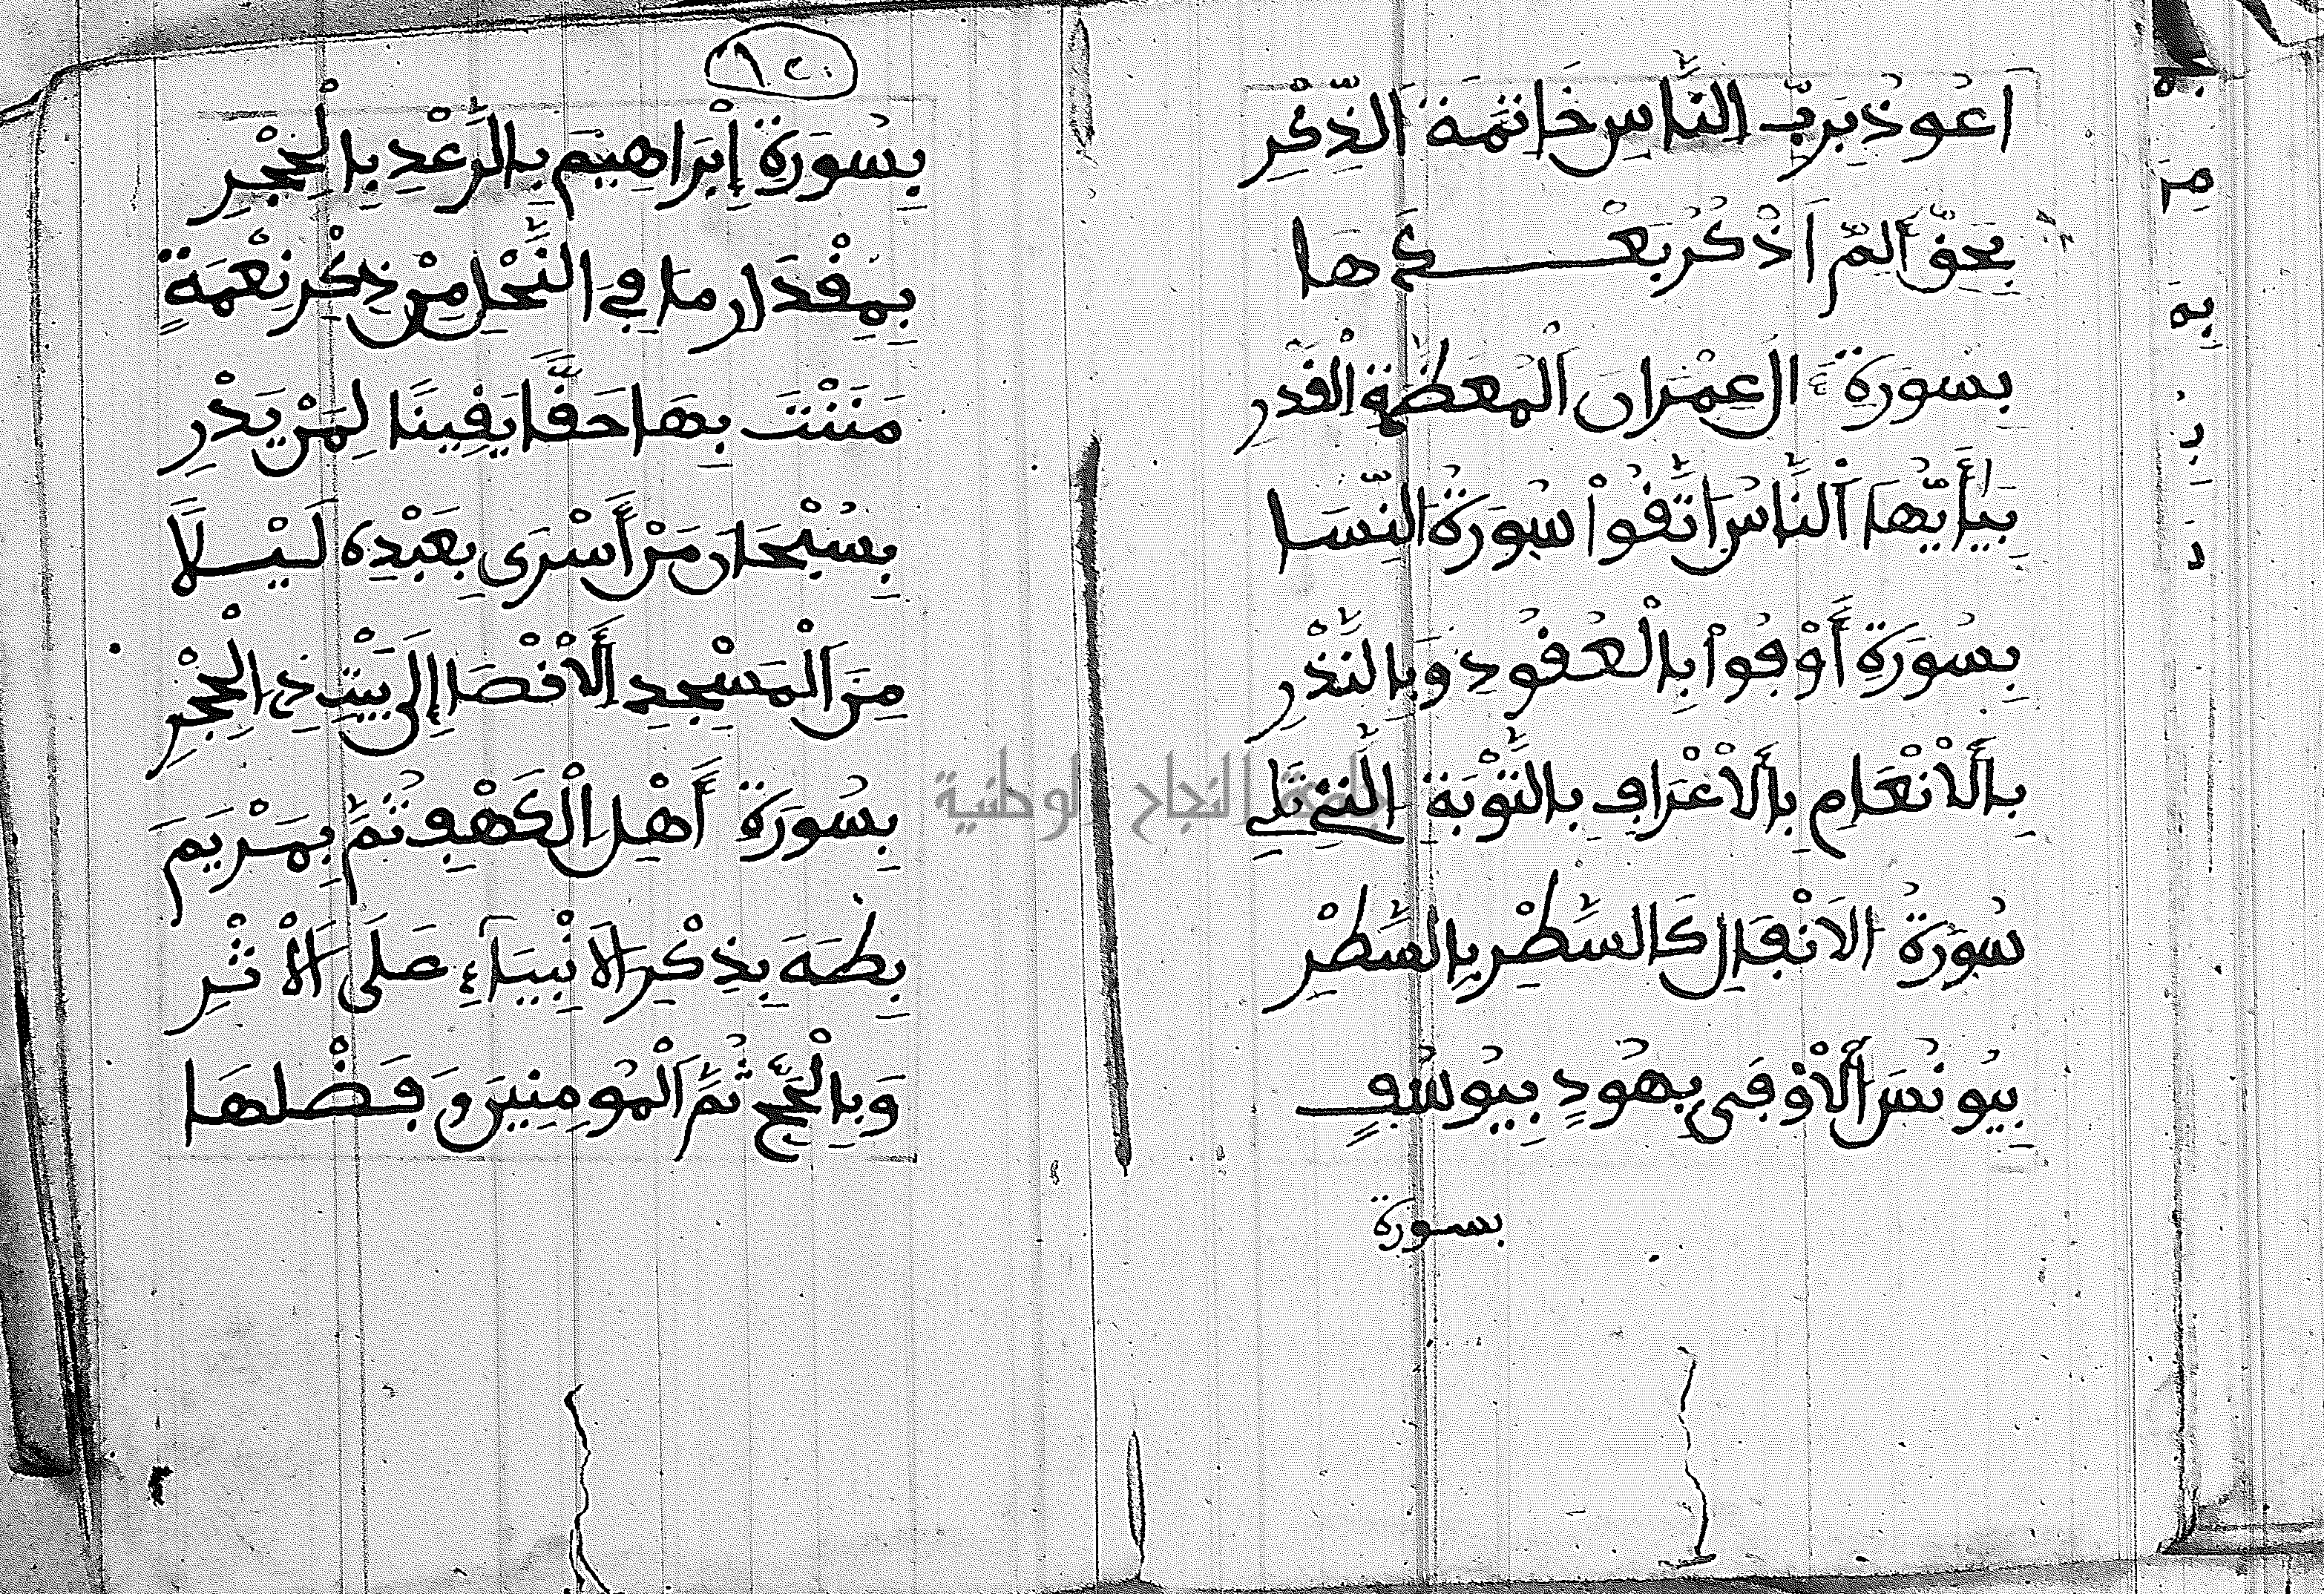 اَعُوذُ بِرَبِّ النَّاسِ خَاتِمَةَ الذِّكْرِ
بِحَقِّ الٓمّٓ اَذْكُرْ بَعْدَهَا
بِسُورَةِ اٰلِ عِمْرَانَ الْمُعَظَّمَةِ الْقَدْرِ
بِيَأَيُّهَا النَّاسُ اتَّقُواْ سُورَةُ النِّسَا
بِسُورَةِ أَوْفُواْ بِالْعُقُودِ وَبِالنَّذْرِ
بِالْأَنْعَامِ بِالْأَعْرَافِ بِالتَّوْبَةِ الَّتِي تَلِي
سُورَةُ الْاَنْفَالِ كَالسَّطْرِ بِالسَّطْرِ
بِيُونُسَ الْأَوْفَى بِهُودٍ بِيُوسُفٍ
بسورة
١٢٠
بِسُورَةِ إِبْرَاهِيمَ بِالرَّعْدِ بِالْحِجْرِ
بِمِقْدَارِ مَا فِي النَّحْلِ مِنْ ذِكْرِ نِعْمَةٍ
مَنَنْتَ بِهَا حَقًّا يَقِينًا لِمَنْ يَدْرِ
بِسُبْحَانَ مَنْ أَسْرَى بِعَبْدِهِ لَيْلًا
مِنَ الْمَسْجِدِ الْأَقْصَا إِلَى بَيْتِ ذِي الْحِجْرِ
بِسُورَةِ أَهْلِ الْكَهْفِ ثُمَّ بِمَرْيَمَ
بِطَهَ بِذِكْرِ الْأَنْبِيَآءِ عَلَى الْأَثْرِ
وَبِالْحَجِّ ثُمَّ الْمُومِنِينَ وَفَضْلِهَا
جامعة النجاح الوطنية